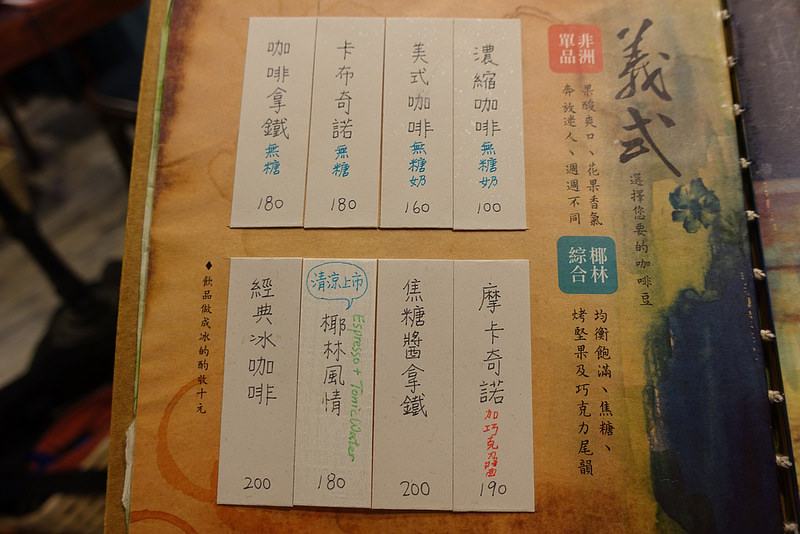 義式
選擇您要的咖啡豆
非洲
單品
果酸爽口、花果香氣
奔放迷人、週週不同
椰林
綜合
均衡飽滿、焦糖、
烤堅果及巧克力尾韻
濃縮咖啡無糖奶
100
美式咖啡無糖奶
160
卡布奇諾無糖
180
咖啡拿鐵無糖
180
摩卡奇諾加巧克力醬
190
焦糖醬拿鐵
200
清涼上市
Espresso + Tonic Water
椰林風情
180
經典冰咖啡
200
◆飲品做成冰的酌收十元